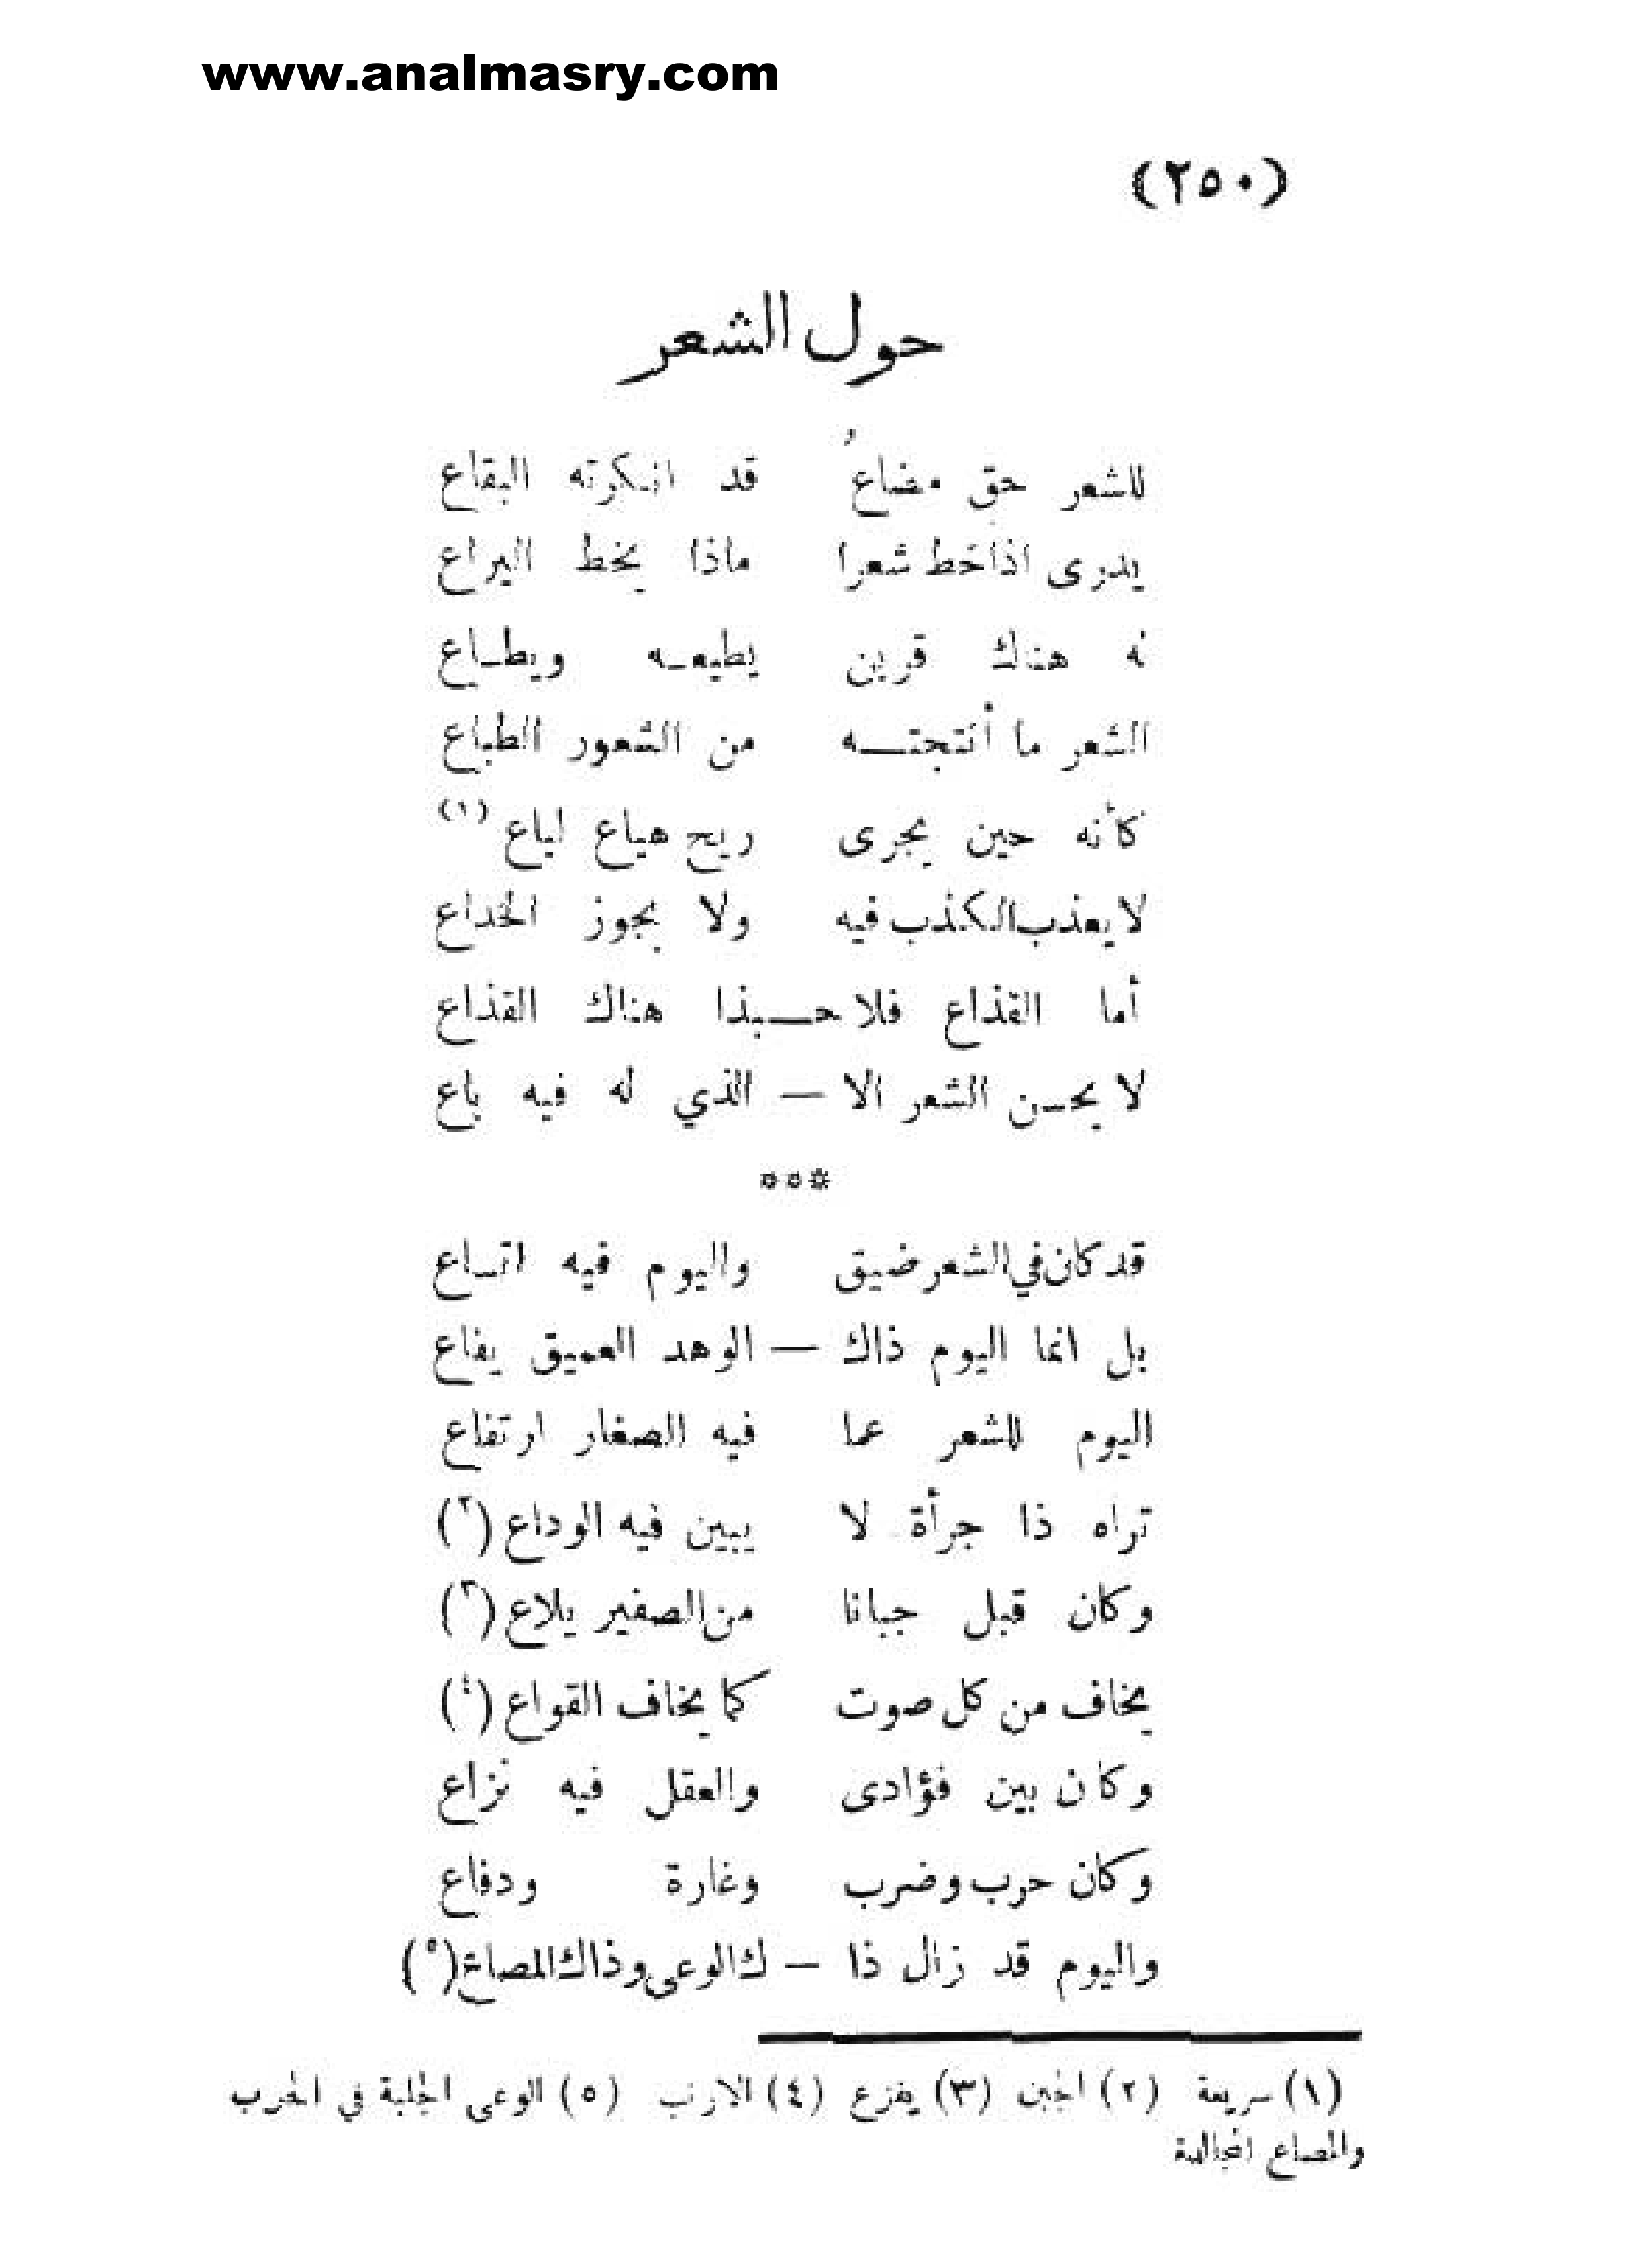 www.analmasry.com
(٢٥٠)
حول الشعر
للشعر حق مضاعُ قد انكرته البقاع
يدرى اذا خط شعرا ماذا يخط اليراع
له هناك قرين يطيعـه ويطـاع
الشعر ما أنتجتـــه من الشعور الطباع
كأنه حين يجرى ريح هياع لياع (١)
لا يعذب الكذب فيه ولا يجوز الخداع
أما القذاع فلا حـــبذا هناك القذاع
لا يحسن الشعر الا — الذي له فيه باع
***
قد كان في الشعر ضيق واليوم فيه اتساع
بل انما اليوم ذاك — الوهد العميق يفاع
اليوم للشعر عما فيه الصغار ارتفاع
تراه ذا جرأة لا يبين فيه الوداع (٢)
وكان قبل جبانا من الصفير يلاع (٣)
يخاف من كل صوت كما يخاف القواع (٤)
وكان بين فؤادى والعقل فيه نزاع
وكان حرب وضرب وغارة ودفاع
واليوم قد زال ذا — ك الوعى وذاك المصاع (٥)
(١) سريعة (٢) الجبن (٣) يفزع (٤) الارنب (٥) الوعى الجلبة في الحرب
والمصاع المجالدة